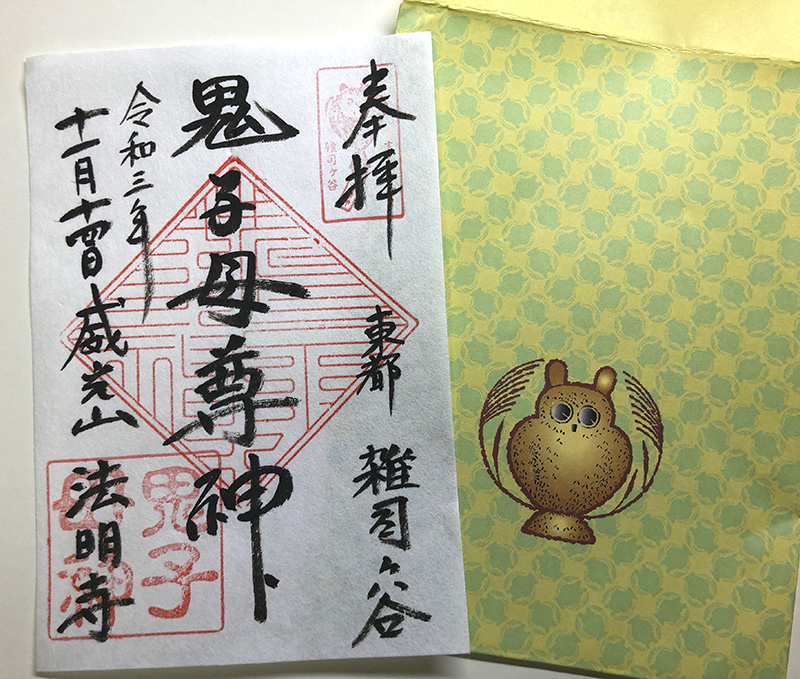 奉拝
東都 雑司ヶ谷
鬼子母尊神
令和三年
十一月十四日 威光山 法明寺
雑司ヶ谷
鬼子
母神